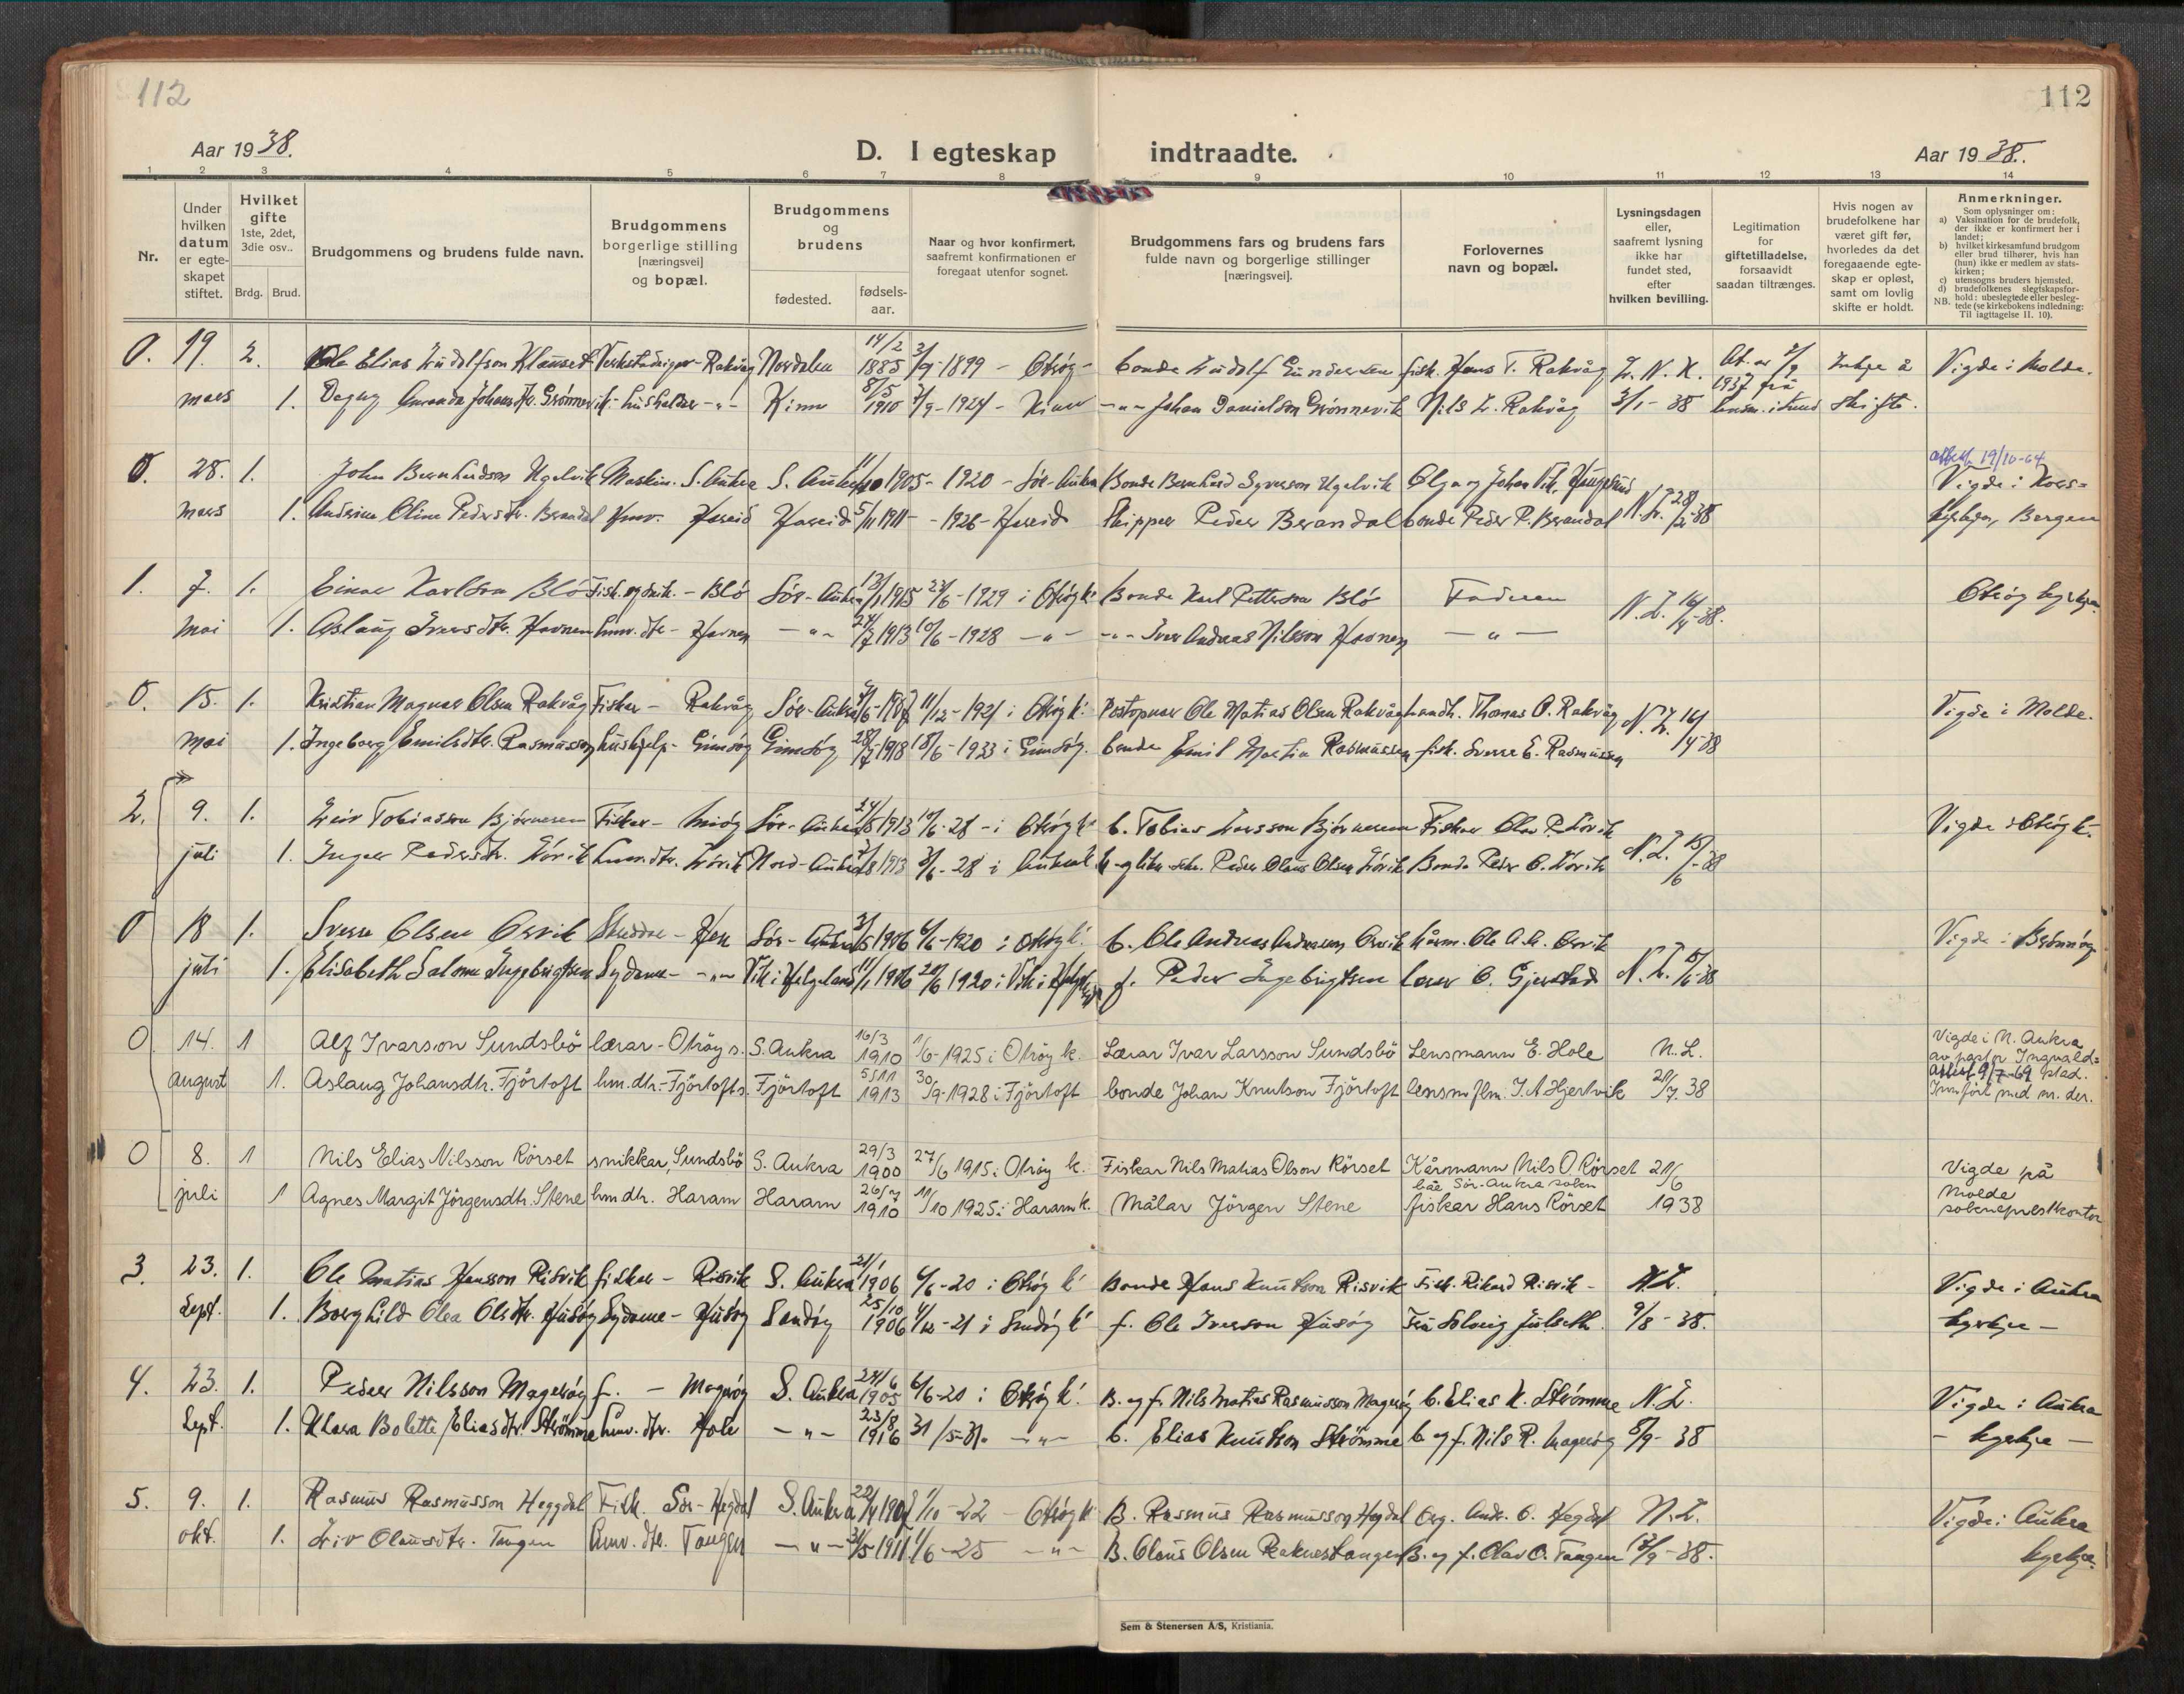 112
112
Aar 1938.
D. I egteskap indtraadte.
Aar 1938.
1 2 3 4 5 6 7 8 9 10 11 12 13 14
Nr.
Under hvilken datum er egte-skapet stiftet.
Hvilket gifte 1ste, 2det, 3die osv..
Brdg. Brud.
Brudgommens og brudens fulde navn.
Brudgommens borgerlige stilling [næringsvei] og bopæl.
Brudgommens og brudens
fødested.
fødsels-aar.
Naar og hvor konfirmert, saafremt konfirmationen er foregaat utenfor sognet.
Brudgommens fars og brudens fars fulde navn og borgerlige stillinger [næringsvei].
Forlovernes navn og bopæl.
Lysningsdagen eller, saafremt lysning ikke har fundet sted, efter hvilken bevilling.
Legitimation for giftetilladelse, forsaavidt saadan tiltrænges.
Hvis nogen av brudefolkene har været gift før, hvorledes da det foregaaende egte-skap er opløst, samt om lovlig skifte er holdt.
Anmerkninger.
Som oplysninger om:
a) Vaksination for de brudefolk, der ikke er konfirmert her i landet;
b) hvilket kirkesamfund brudgom eller brud tilhører, hvis han (hun) ikke er medlem av stats-kirken;
c) utensogns bruders hjemsted.
d) brudefolkenes slegtskapsfor-hold: ubeslegtede eller besleg-tede (se kirkebokens indledning: Til iagttagelse II. 10).
NB.
0. 19. 2. Ole Elias Ludolfson Klauset Rakvåg Nordalen 14/2 1885 3/9-1899 - Otrøy - bonde Ludolf Gundersen fisk. Hans T. Rakvåg Vigde i Molde.
mars 1. Dagny Amanda Johansdtr. Grønnevik hushalder - " - Kinn 8/5 1910 - 1924 - Kinn - " - Johan Danielson Grønnevik Nils L. Rakvåg 3/1-38 1937 skifte.
0. 28. 1. John Bernhardson Ugelvik Maskin. S. Aukra S. Aukra 1905 - 1920 - Sør-Aukra Bonde Bernhard Syverson Ugelvik Olga og Johan Vik, 19/10-64 Vigde i Kors=
mars 1. Andrine Oline Pedersdtr. Brandal hmv. Hareid Hareid 5/11 1911 - 1926 - Hareid Skipper Peder Brandal bonde Peder P. Brandal N.L. 28/2-38 kyrkja, Bergen
1. 7. 1. Einar Karlson Blø Fisk. og snik. - Blø Sør-Aukra 1915 23/6-1929 i Otrøy k. Bonde Karl Petterson Blø Faderen N.L. 16/4-38. Otrøy kyrkja
mai 1. Aslaug Iversdtr. Havnen hmv. dtr. - Havnen - " - 24/7 1913 10/6-1928 - " - - " - Iver Andreas Nilsson Havnen - " -
0. 15. 1. Kristian Magnus Olsen Rakvåg Fiskar - Rakvåg Sør-Aukra 1907 11/12-1921 i Otrøy k. Postopnar Ole Matias Olsen Rakvåg handh. Thomas O. Rakvåg N.L. 16/4-38 Vigde i Molde.
mai 1. Ingeborg Emilsdtr. Rasmussen hushjelp - Gimsøy Gimsøy 28/7 1918 18/6-1933 i Gimsøy. bonde Emil Martin Rasmussen fisk. Sverre E. Rasmussen
2. 9. 1. Leir Tobiasson Bjørnerem Fiskar - Sør-Aukra 24/5 1913 10/6-28 - i Otrøy k. b. Tobias Larsson Bjørnerem Fiskar Olav P. Lövik Vigde i Otrøy k.
juli 1. Inger Pedersdtr. Lövik hmv. dtr. Lövik Nord-Aukra 1913 3/6-28 i Aukra k. Peder Olaus Olsen Lövik Bonde Peder O. Lövik N.L. 15/6-38
0 18 1. Sverre Olsen Orvik Skreddar - Hen Sør-Aukra 1906 6/6-1920 i Otrøy k. b. Ole Andreas Andreassen Orvik kårm. Ole A. A. Orvik Vigde i Brønnøy
juli 1. Elisabeth Salome Ingebrigtsen Sydame - " - Vik i Helgeland 11/1 1906 20/6 1920 i Vik i Helgeland f. Peder Ingebrigtsen lærer O. Gjerstad N.L. 15/6-38
0 14. 1 Alf Ivarson Sundsbö lærar - Otröy s. S. Aukra 16/3 1910 1/6-1925 i Otröy k. Lærar Ivar Larsson Sundsbö Lensmann E. Hole N.L. Vigde i N. Aukra av pastor Ingvald=
august 1. Aslaug Johansdtr. Fjörtoft hm. dtr. - Fjörtoft s. Fjörtoft 5/11 1913 30/9-1928 i Fjörtoft bonde Johan Knutson Fjörtoft lensm flm. I. A Hjertvik 21/7 38 9/7-69 stad. Innfört med nr. der.
0 8. 1 Nils Elias Nilsson Rörset snikkar, Sundsbö S. Aukra 29/3 1900 27/6 1915 i Otröy k. Fiskar Nils Matias Olson Rörset Kårmann Nils O Rörset 21/6 Vigde på
båe Sör-Aukra sokn
juli 1 Agnes Margit Jörgensdtr. Stene hm dtr. Haram Haram 26/7 1910 11/10 1925 i Haram k. Målar Jörgen Stene fiskar Hans Rörset 1938 Molde sokneprestkontor
3. 23. 1. Ole Matias Hansson Risvik fiskar - Risvik S. Aukra 21/1 1906 6/6-20 i Otrøy k. Bonde Hans Knutson Risvik Fisk. Rikard Risvik - N.L. Vigde i Aukra
Sept. 1. Borghild Olea Olsdtr. Husøy Sydame - Husøy Sandøy 25/10 1906 4/12-21 i Sandøy k. f. Ole Iverson Husøy Fru Solveig Julseth 9/8-38. kyrkje -
4. 23. 1. Peder Nilsson Magerøy f. - Magerøy S. Aukra 24/6 1905 6/6-20 i Otrøy k. B. og f. Nils Matias Rasmusson Magerøy b. Elias K. Strømme N.L. Vigde i Aukra
Sept. 1. Klara Bolette Eliasdtr. Strømme hmv. dtr. Hole - " - 23/8 1916 31/5-31. - " - b. Elias Knutson Strømme b. og f. Nils R. Magerøy 8/9-38 - kyrkje -
5. 9. 1. Rasmus Rasmusson Heggdal Fisk. Sør-Hegdal S. Aukra 22/4 1907 1/10-22 - Otrøy k. B. Rasmus Rasmusson Hegdal Org. Andr. O. Hegdal N.L. Vigde i Aukra
okt. 1. Liv Olausdtr. Tangen hmv. dtr. Tangen - " - 31/5 1911 1/6-25 - " - B. Olaus Olsen Raknestangen B. og f. Olav O. Tangen 12/9-38. kyrkje.
Sem & Stenersen A/S, Kristiania.